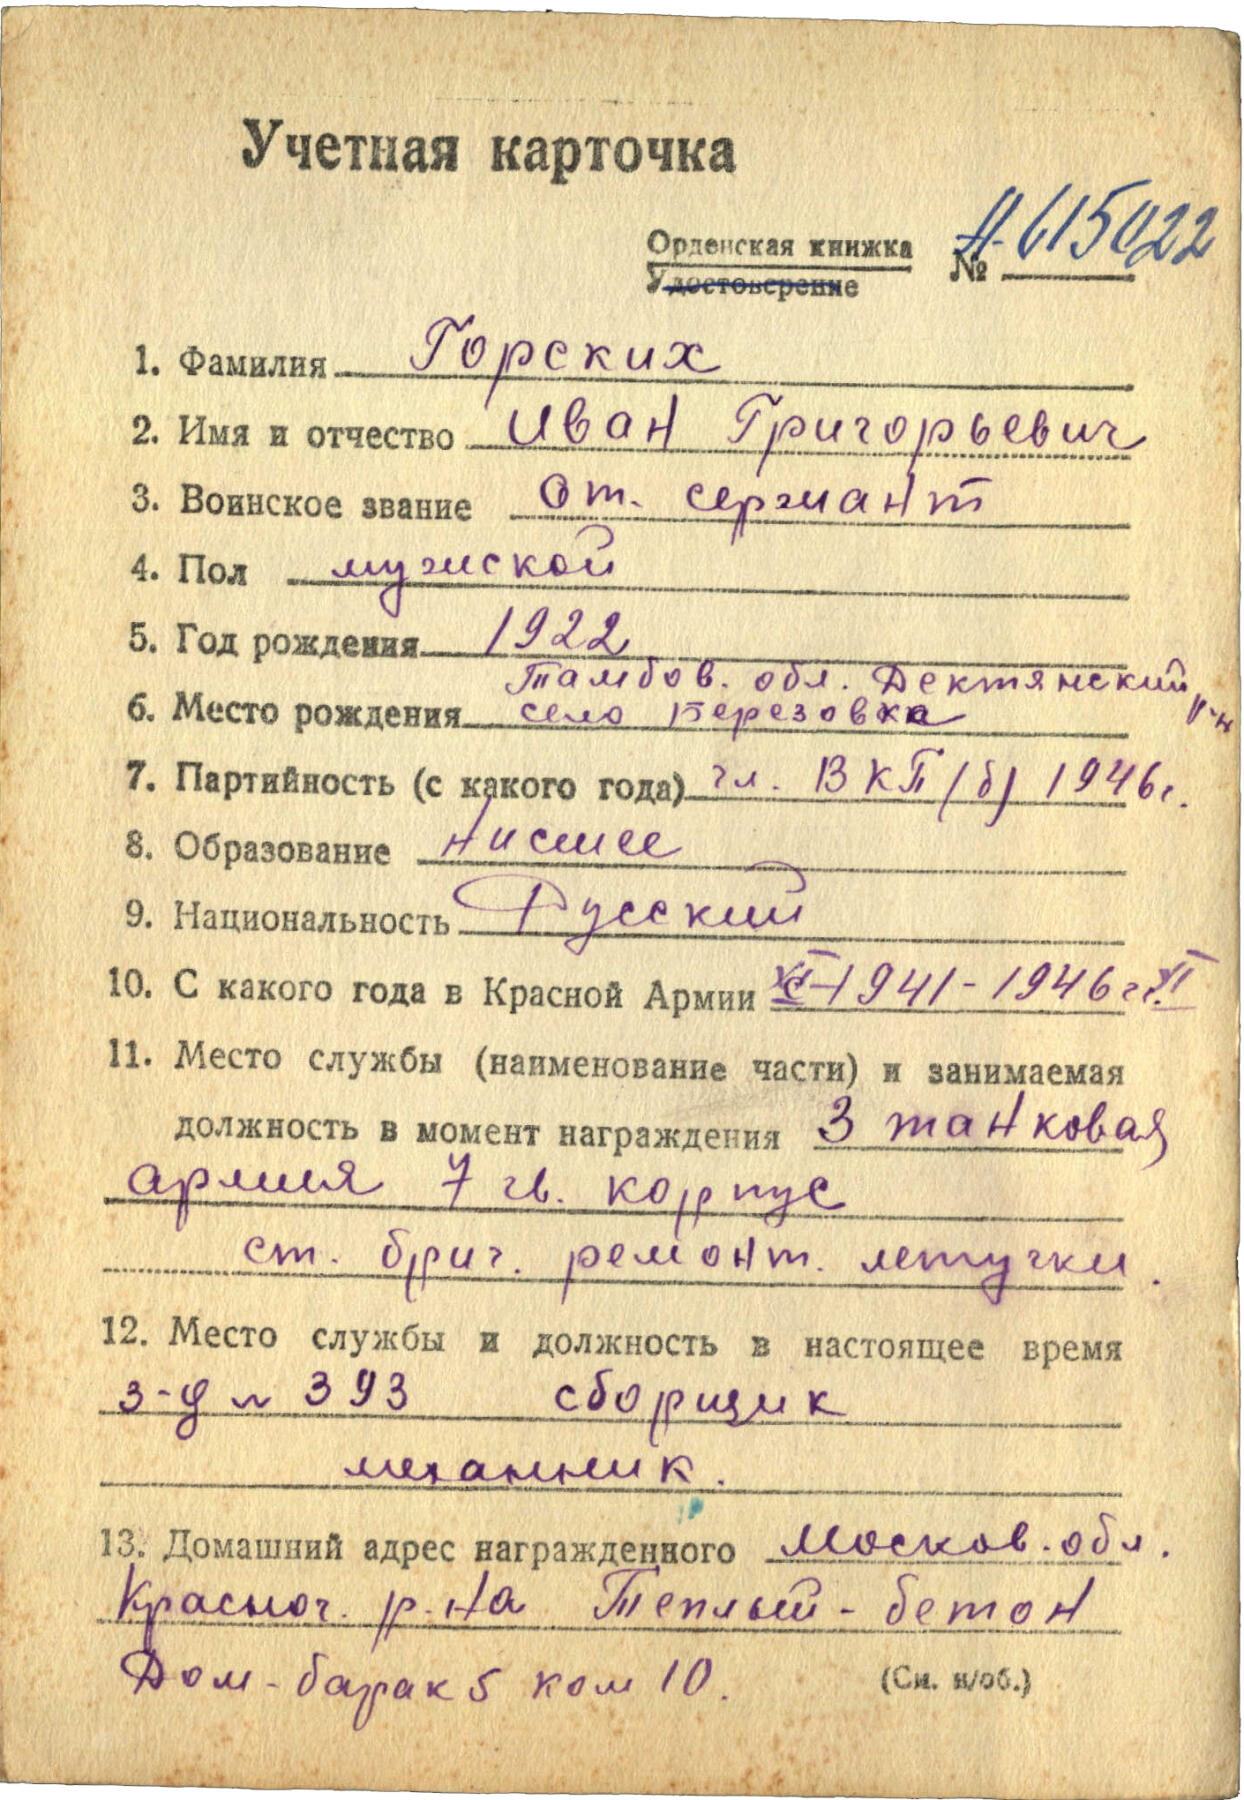 Учетная карточка
Орденская книжка № А-615022
Удостоверение
1. Фамилия Горских
2. Имя и отчество Иван Григорьевич
3. Воинское звание ст. сержант
4. Пол мужской
5. Год рождения 1922
Тамбов. обл. Дектянский р-н
6. Место рождения село Березовка
7. Партийность (с какого года) чл. ВКП(б) 1946г.
8. Образование низшее
9. Национальность Русский
10. С какого года в Красной Армии 1941-1946 гг.
11. Место службы (наименование части) и занимаемая
должность в момент награждения 3 танковая
армия 7 гв. корпус
ст. бриг. ремонт. летучки.
12. Место службы и должность в настоящее время
з-д № 393 сборщик
механник.
13. Домашний адрес награжденного Москов. обл.
Красног. р-на Теплый-бетон
Дом-барак 5 ком 10. (См. н/об.)